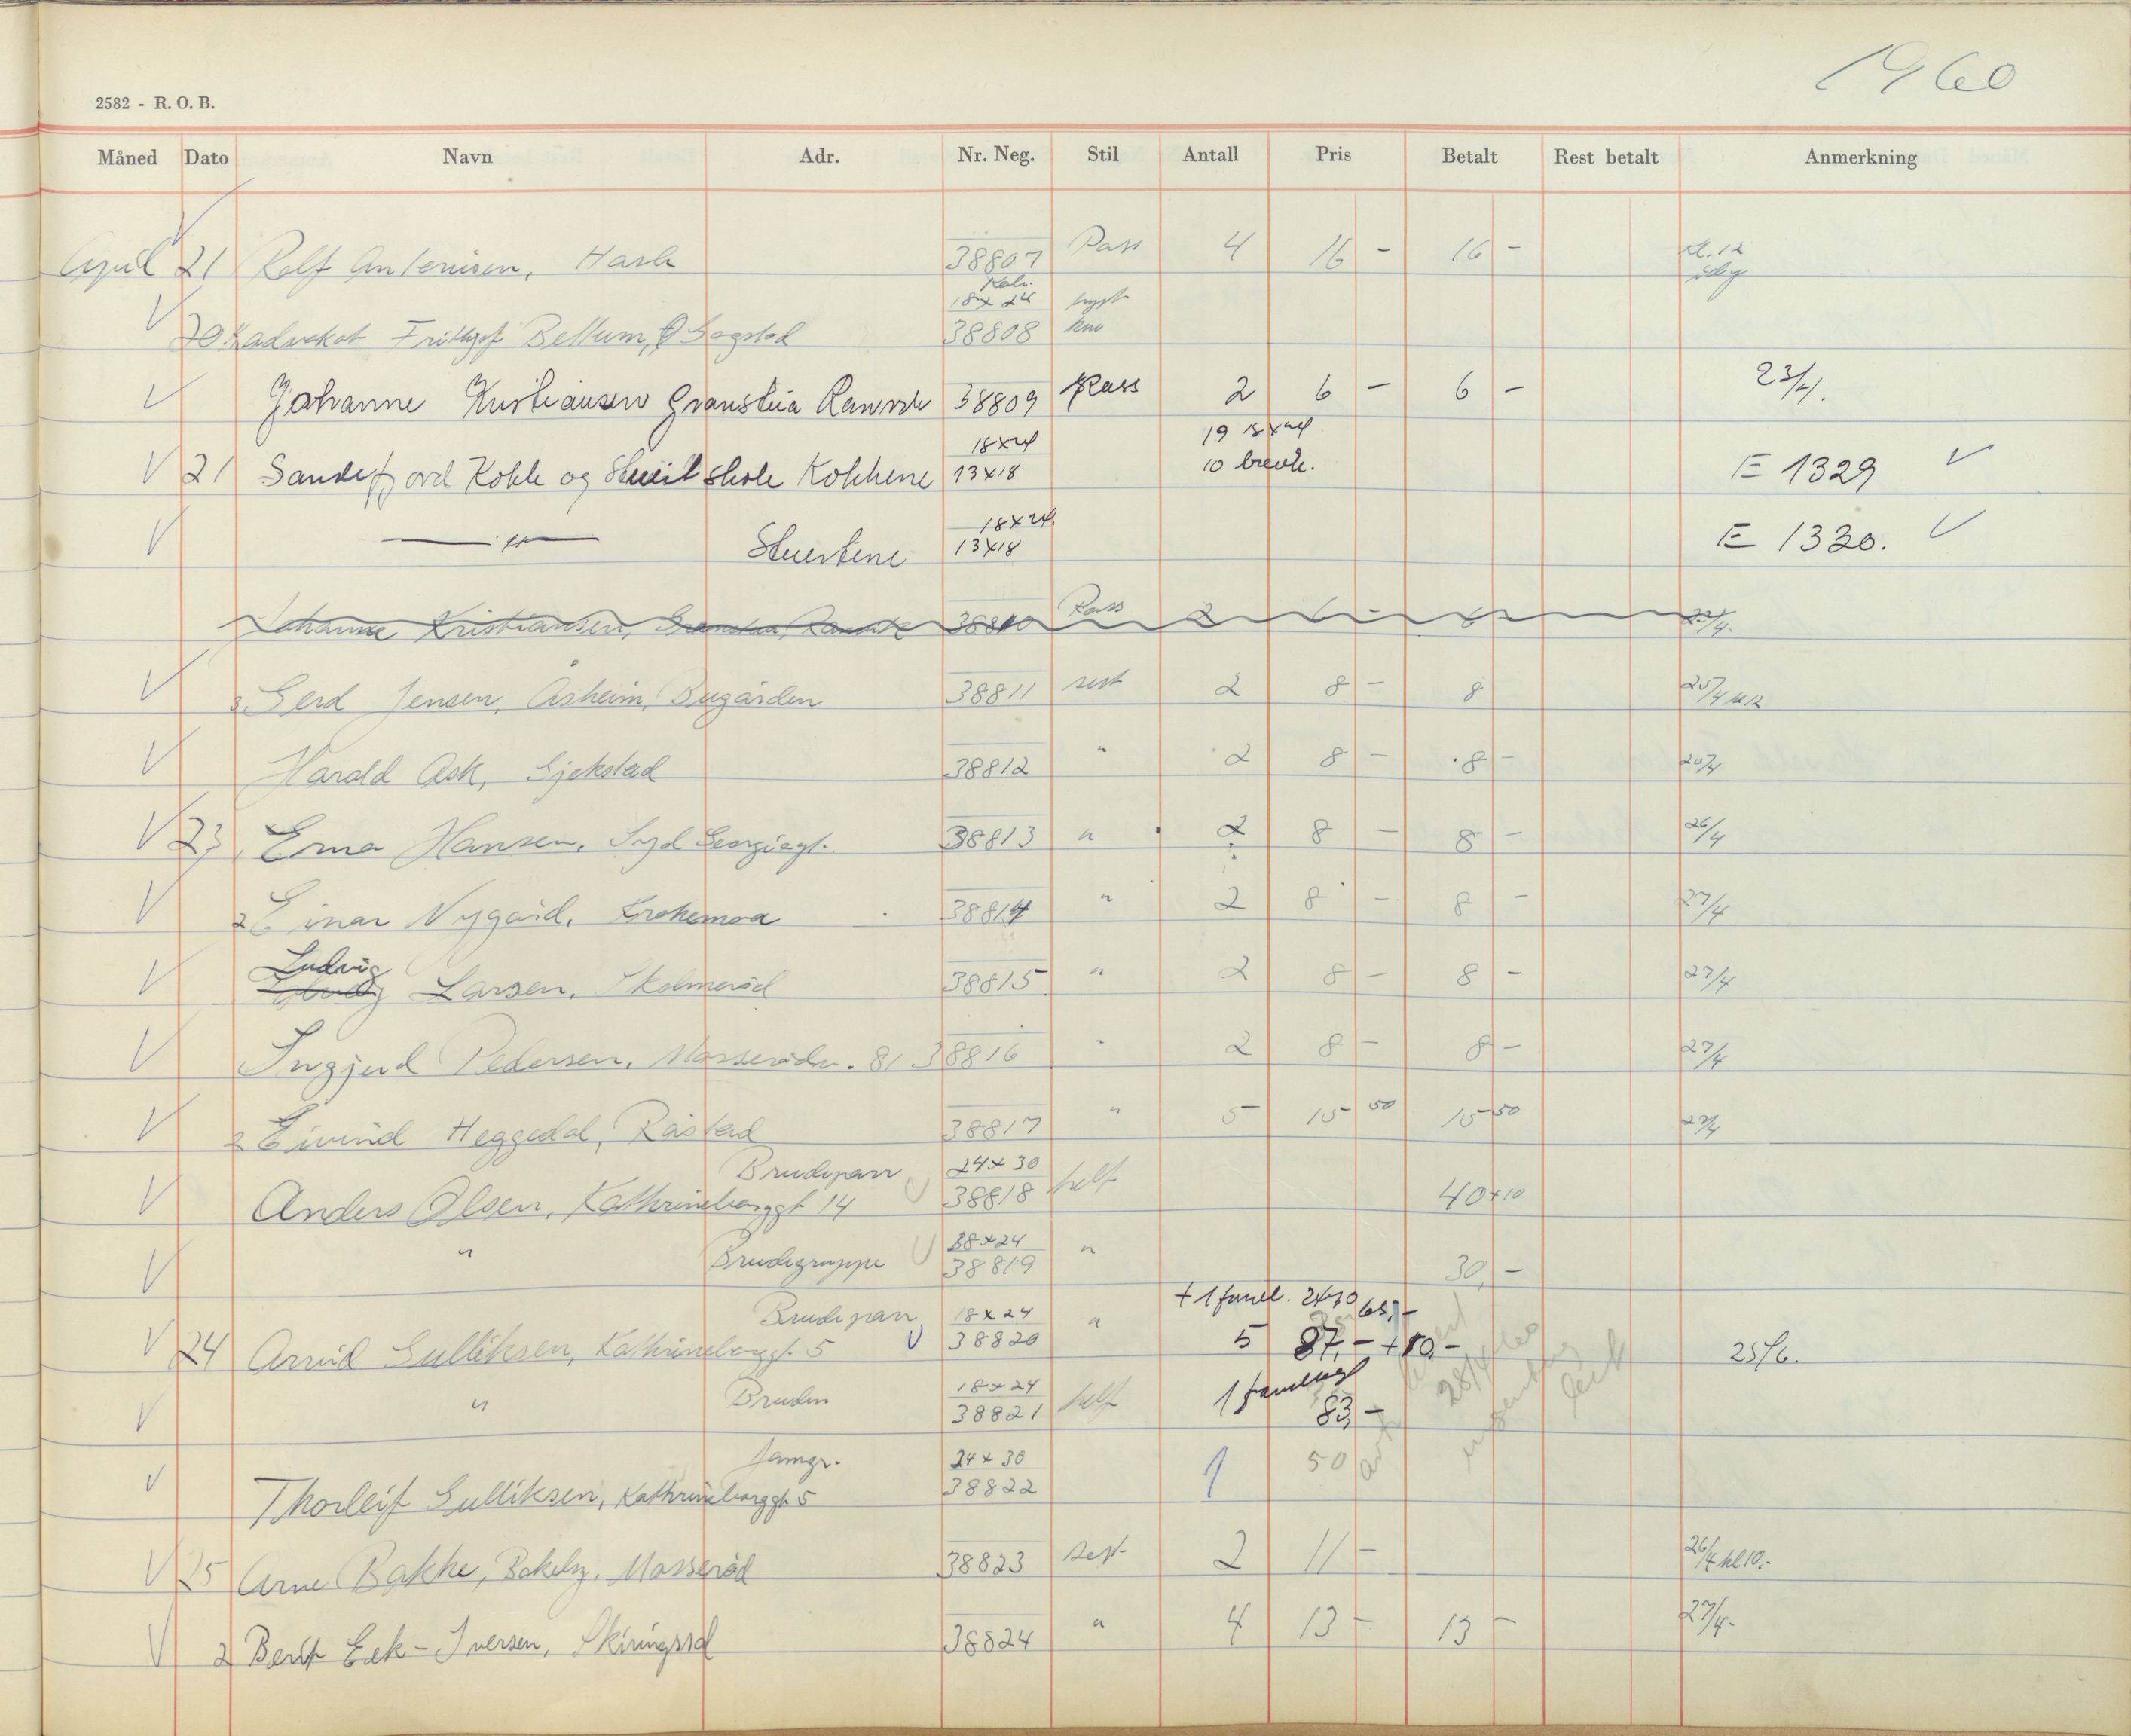 1960
2582 - R. O. B.
Måned Dato Navn Adr. Nr. Neg. Stil Antall Pris Betalt Rest betalt Anmerkning
April 21 Rolf Antonisen, Hasle 38807 Pass 4 16 - 16 - kl. 12
Kab. 18 x 24
advokat Frithjof Bettum, Gogstad 38808 kne
Johanne Kristiansen Granstua Ranvik 38809 Pass 2 6 - 6 - 23/4.
18x24 19 18x24
21 Sandefjord Kokk og Stuert skole Kokkene 13x18 10 brevk. E 1329
18x24.
Stuertene 13x18 E 1330.
Johanne Kristiansen, Granstua, Ranvik 38810 Pass 2 6 - 6 - 23/4.
3. Gerd Jensen, Åsheim, Bugården 38811 rest 2 8 - 8 25/4 kl 12
Harald Ask, Gjekstad 38812 " 2 8 - 8 - 25/4
23 Erna Hansen, Syd Georgiagt. 38813 " 2 8 - 8 - 26/4
2 Einar Nygård, Krokemoa 38814 " 2 8 - 8 - 27/4
Ludvig
Larsen, Skolmerød 38815 " 2 8 - 8 - 27/4
Ingjerd Pedersen, Mosserødv. 81 38816 " 2 8 - 8 - 27/4
2 Eivind Heggedal, Råstad 38817 " 5 15 50 15 50 27/4
Brudepar 24x30
Anders Olsen, Kathrineborggt 14 38818 helf 40+10
" Brudegruppe 18x24 38819 " 30,-
+ 1 famel. 24x30 65,-
Brudepar 18x24
24 Arvid Gulliksen, Kathrineborggt. 5 38820 " 5 87,- + 10,- 25/6.
" Bruden 18x24 38821 helf 1 83,-
28/4
Famgr. 24x30
Thorleif Gulliksen, Kathrineborggt 5 38822 1 50
25 Arne Bakke, Mosserød 38823 rest 2 11 - 26/4 kl 10.-
2 Berit Eek-Iversen, Skiringssal 38824 " 4 13 - 13 - 27/4-